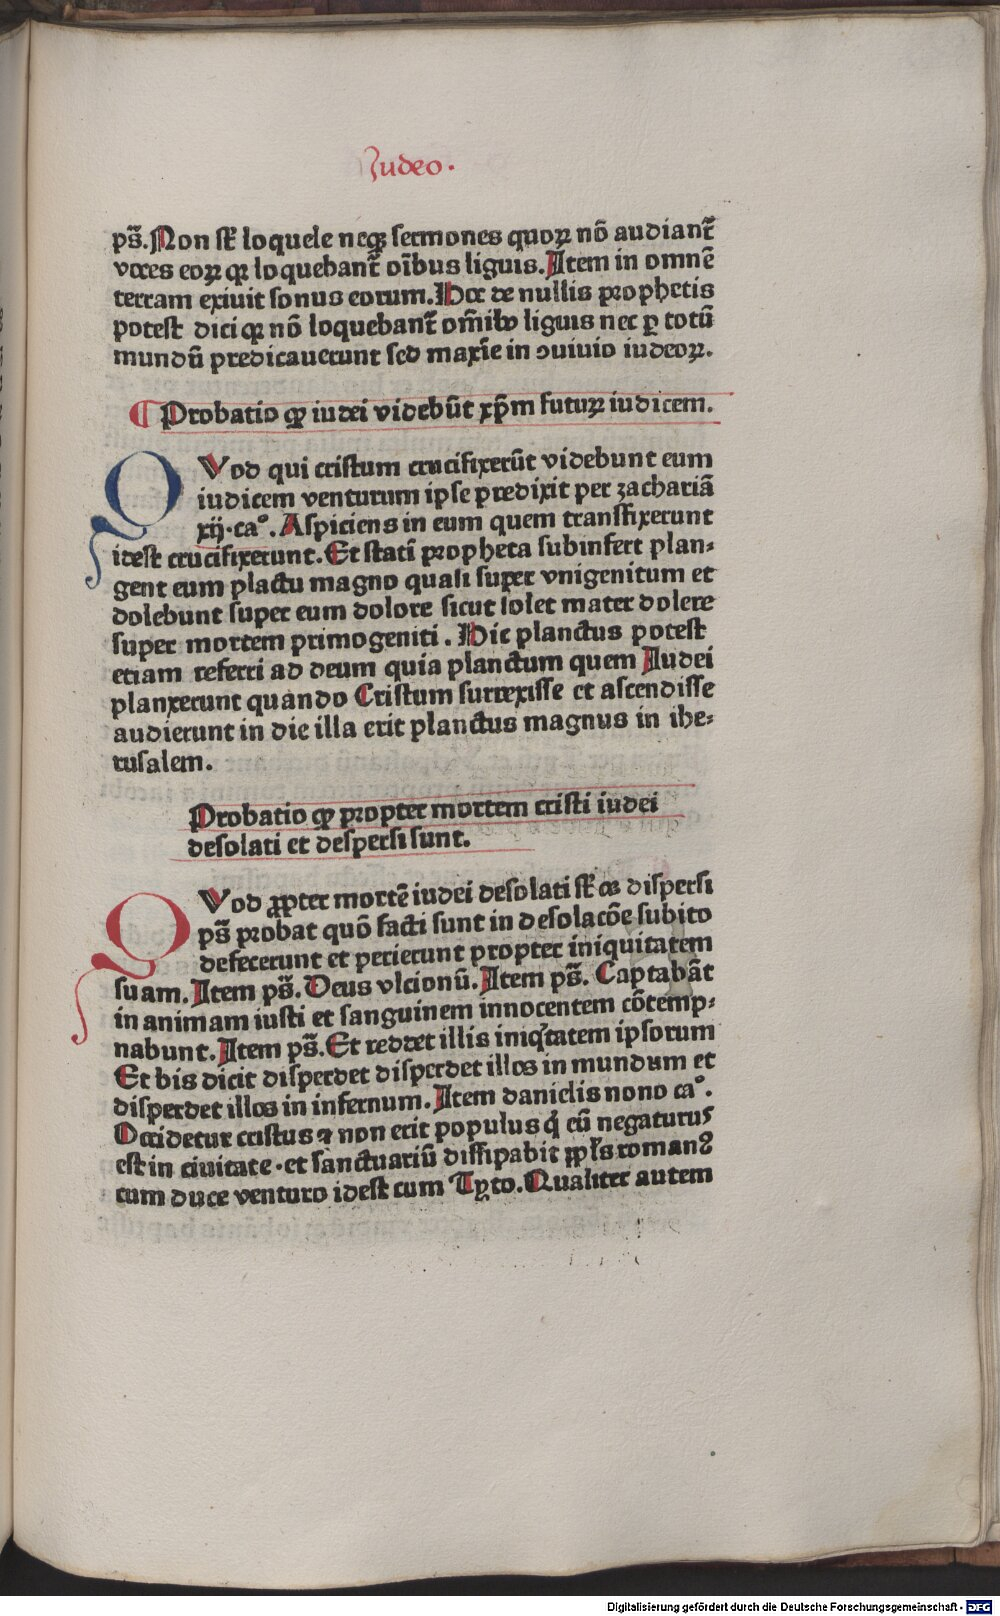 Judeo.
ps̄. Non st̄ loquele neqꝫ sermones quoꝝ nō audiant᷑
voces eoꝝ qꝛ loquebant᷑ oībus liguis. Item in omnē
terram exiuit sonus eorum. Hoc de nullis prophetis
potest dici qꝛ nō loquebant᷑ om̄ibꝰ liguis nec ꝑ totū
mundū predicauerunt sed maxīe in ↄuiuio iudeoꝝ.
¶ Probatio ꝙ iudei videbūt xp̄m futuꝝ iudicem.
QVod qui cristum crucifixerūt videbunt eum
iudicem venturum ipse predixit per zachariā
xij. caº. Aspiciens in eum quem transfixerunt
idest crucifixerunt. Et statī propheta subinfert plan⸗
gent eum plactu magno quasi super vnigenitum et
dolebunt super eum dolore sicut solet mater dolere
super mortem primogeniti. Hic planctus potest
etiam referri ad deum quia planctum quem Iudei
planxerunt quando Cristum surrexisse et ascendisse
audierunt in die illa erit planctus magnus in ihe⸗
rusalem.
Probatio ꝙ propter mortem cristi iudei
desolati et despersi sunt.
QVod ꝓpter mortē iudei desolati st̄ ac dispersi
ps̄ probat quō facti sunt in desolacōe subito
defecerunt et perierunt propter iniquitatem
suam. Item ps̄. Deus vlcionū. Item ps̄. Captabāt
in animam iusti et sanguinem innocentem cōtemp⸗
nabunt. Item ps̄. Et reddet illis iniqͥtatem ipsorum
Et bis dicit disperdet disperdet illos in mundum et
disperdet illos in infernum. Item danielis nono caº.
Occidetur cristus ⁊ non erit populus qͥ eū negaturus
est in ciuitate. et sanctuariū dissipabit ppl̄s romanꝰ
cum duce venturo idest cum Tyto. Qualiter autem
Digitalisierung gefördert durch die Deutsche Forschungsgemeinschaft - DFG